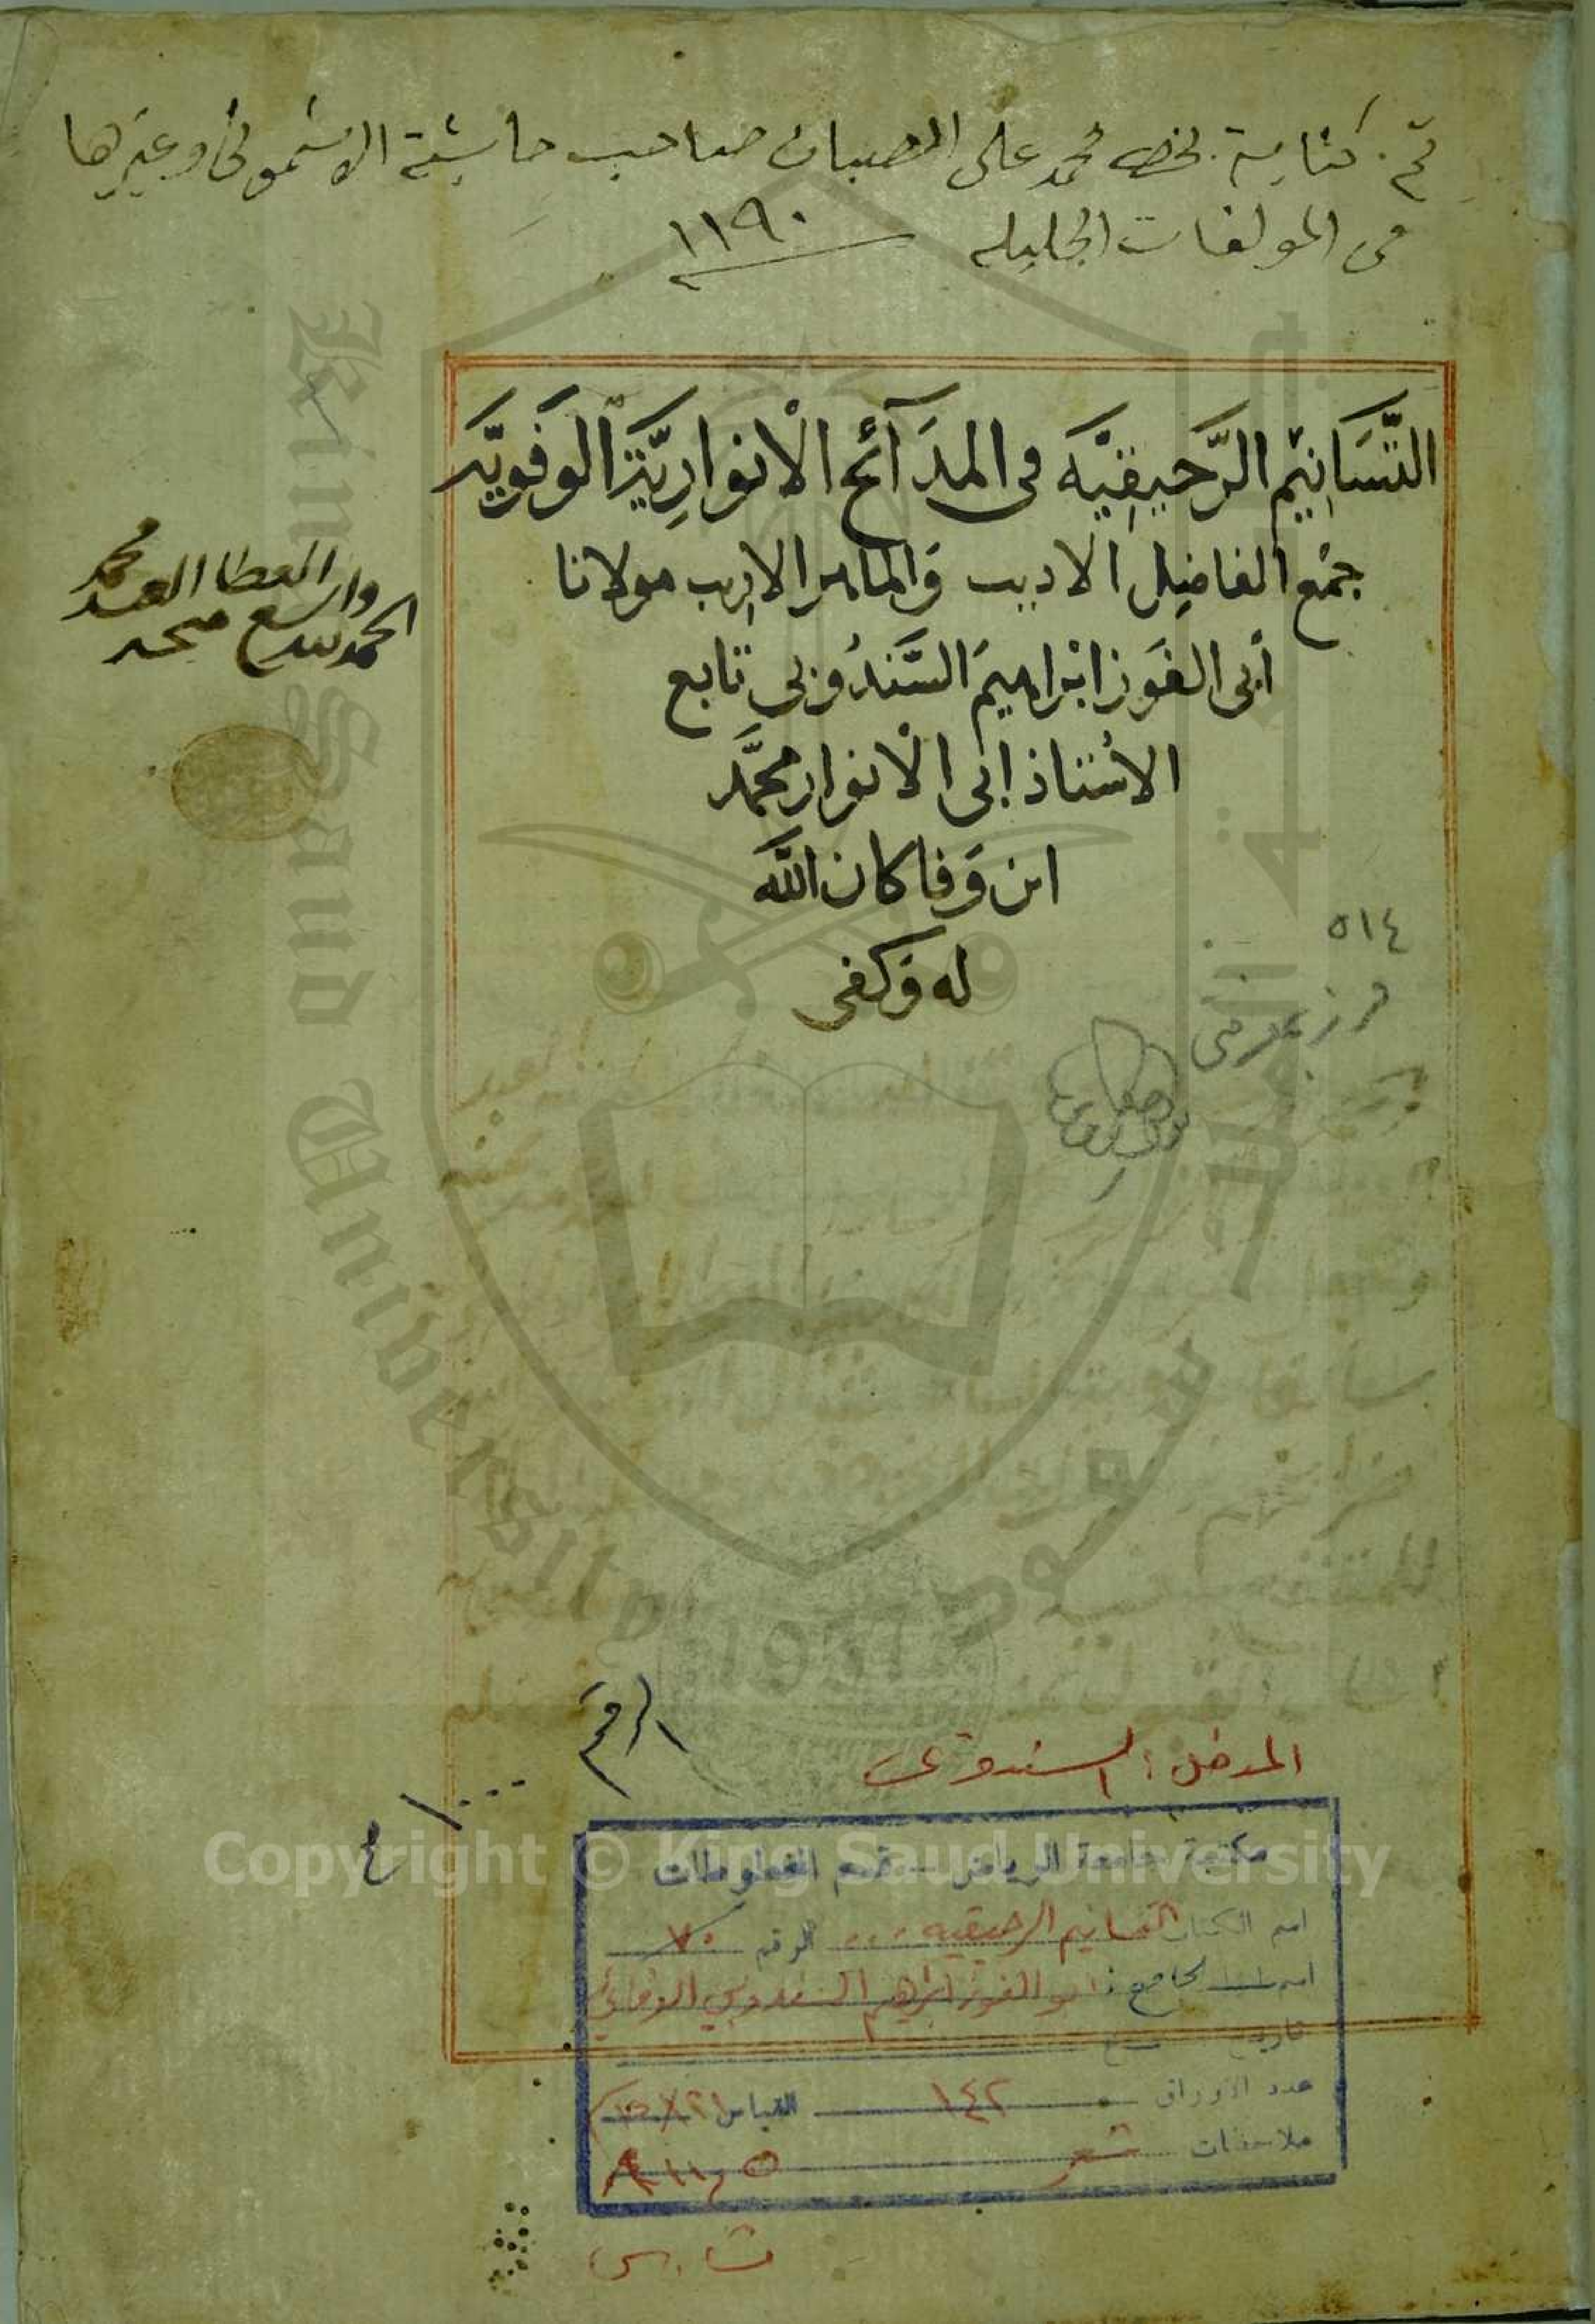 تم كتابة بخط محمد على الصبان صاحب حاشية الاشمونى وغيرها
من المولفات الجليله ١١٩٠
التَّسَانِيْم الرَّحِيقِيَّه فى المدَآئح الْانوارِيَّة الوَفَويَّه
جمْع الفاضِل الاديب وَالماهر الاريب مولانا
أبى الفَوز ابْراهيمَ السَّندُوبى تابع
الاسُتاذ ابى الْانوار محمَّد
ابن وَفا كان اللَّه
له وَكفى
الحمد لله
واسع العطا
محمد
٥١٤
المدخل : السندوبى
الرقم
King Saud University
جامعة الملك سعود
1957
Copyright © King Saud University
مكتبة جامعة الرياض - قسم المخطوطات
اسم الكتاب التسانيم الرحيقيه ... الرقم ٧٠
اسم الجامع : ابو الفوز ابراهيم السندوبي الوفائي
تاريخ
عدد الاوراق ١٤٢ القياس ٢١×١٥
ملاحظات شعر